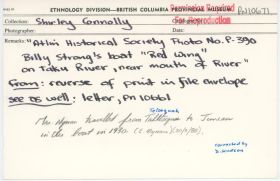 ETHNOLOGY DIVISION—BRITISH COLUMBIA PROVINCIAL MUSEUM
Permission Required
For Reproduction
PN10671
Collection: Shirley Connolly
Photographer:
Date:
Remarks: "Atlin Historical Society Photo No. P-390
Billy Strong's boat "Red Wing"
on Taku River, near mouth of River"
From: reverse of print in file envelope
see as well: letter, PN 10661
Telegraph
Mrs. Nyman travelled from Tulsequah to Juneau
in this boat in 1930. (E. Nyman)
corrected by